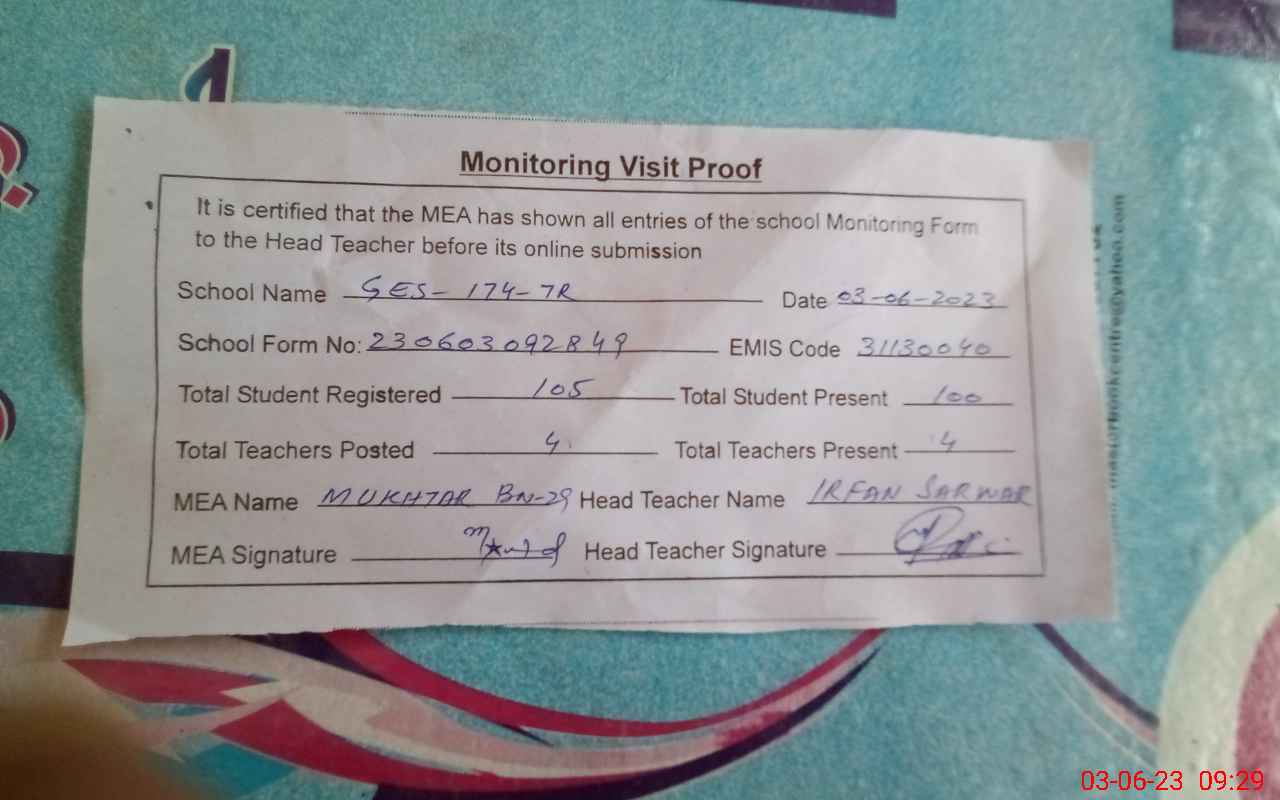 Monitoring Visit Proof
It is certified that the MEA has shown all entries of the school Monitoring Form
to the Head Teacher before its online submission
School Name GES-174-7R Date 03-06-2023
School Form No: 230603092849 EMIS Code 31130040
Total Student Registered 105 Total Student Present 100
Total Teachers Posted 4 Total Teachers Present 4
MEA Name MUKHTAR BN-29 Head Teacher Name IRFAN SARWAR
MEA Signature Head Teacher Signature
03-06-23 09:29